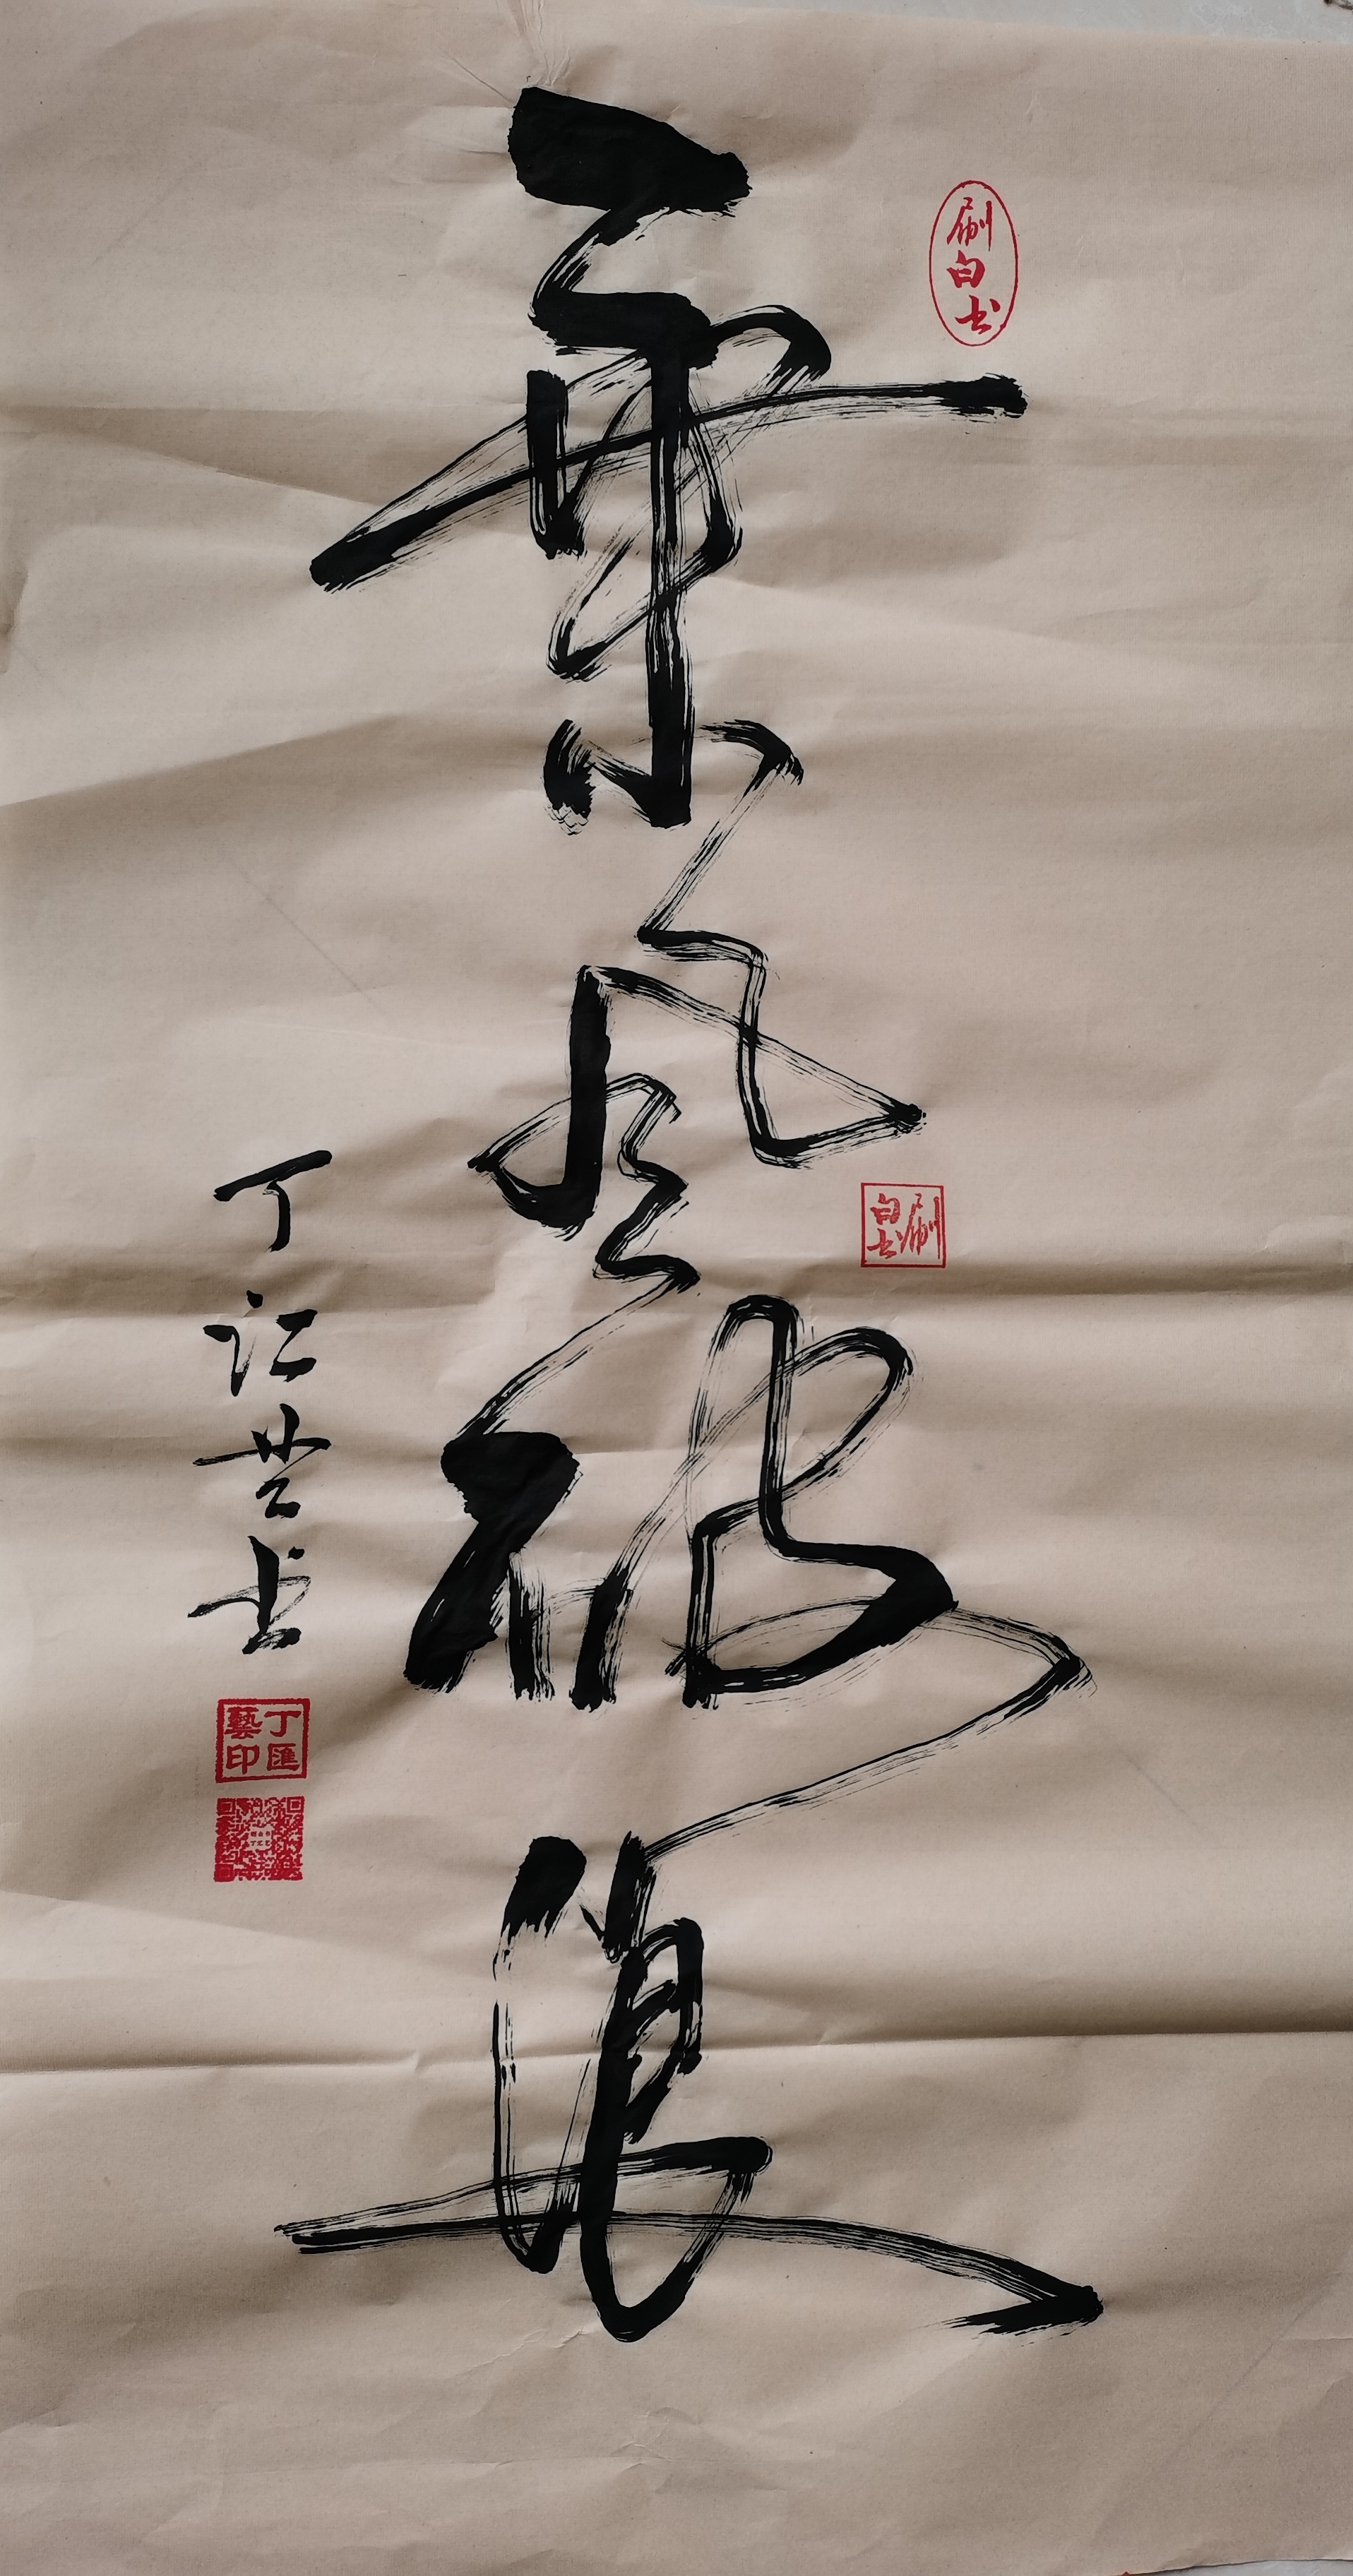 乘风破浪
丁汇芸书
刷白书
刷白书
丁匯藝印